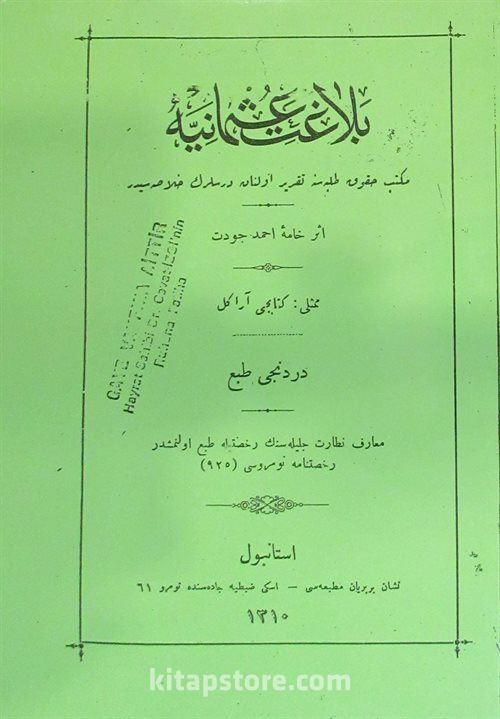 بلاغت عثمانیهٔ
مکتب حقوق طلبه‌سنه تقریر اولنان درسلرك خلاصه‌سیدر
اثر خامهٔ احمد جودت
ممثلی: کتابجی آراکل
دردنجی طبع
معارف نظارت جلیله‌سنك رخصتیله طبع اولنمشدر
رخصتنامه نومروسی (٩٢٥)
استانبول
نشان بربریان مطبعه‌سی — اسکی ضبطیه جاده‌سنده نومرو ٦١
١٣١٠
Hayrat Sahibi Dr. Cevat İzgi'nin
Ruhuna Fatiha
kitapstore.com